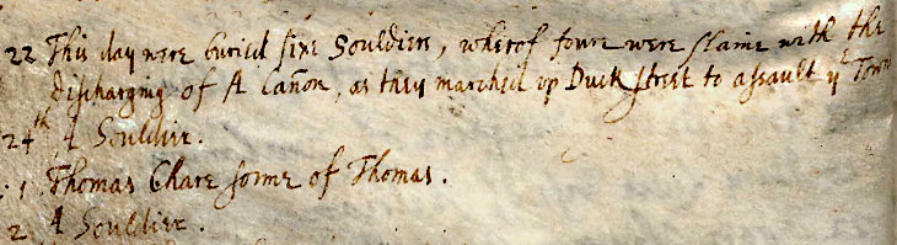 22 This day were buried sixe Souldiers, wherof foure were slaine with the
discharging of A Cañon, as they marched up Duck street to assault yᵉ Town
24th A Souldier.
1 Thomas Chare sonne of Thomas.
2 A Souldier.